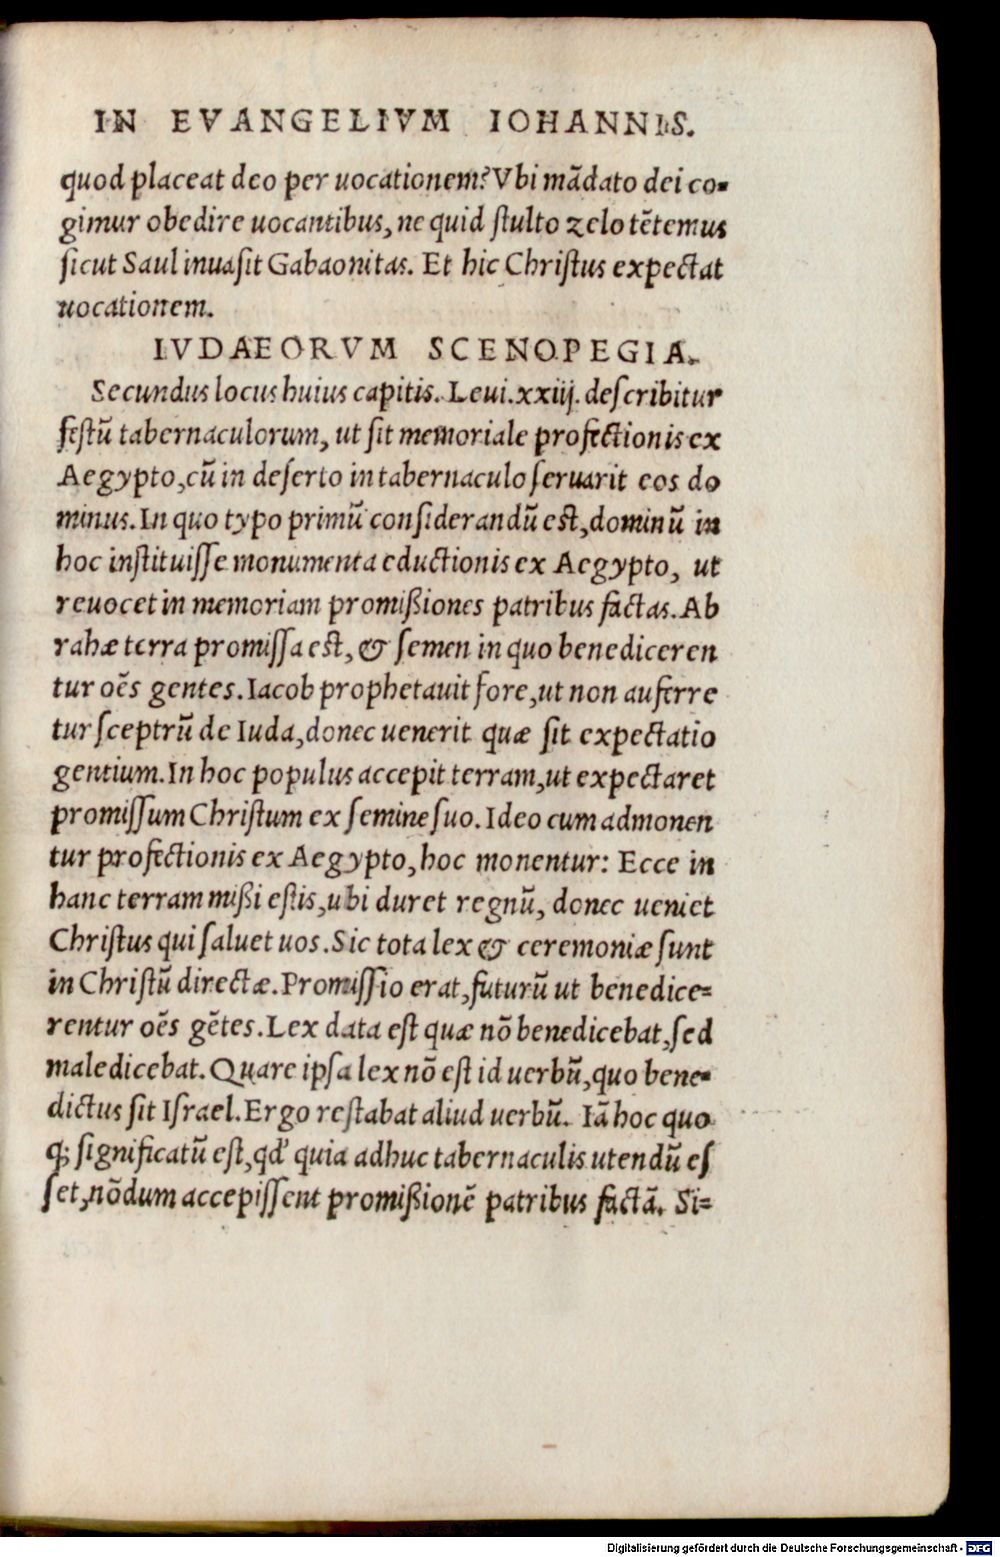 IN EVANGELIVM IOHANNIS.
quod placeat deo per uocationem? Vbi mãdato dei co-
gimur obedire uocantibus, ne quid ſtulto zelo tẽtemus
ſicut Saul inuaſit Gabaonitas. Et hic Chriſtus expectat
uocationem.
IVDAEORVM SCENOPEGIA.
Secundus locus huius capitis. Leui. xxiij. deſcribitur
feſtũ tabernaculorum, ut ſit memoriale profectionis ex
Aegypto, cũ in deſerto in tabernaculo ſeruarit eos do
minus. In quo typo primũ conſiderandũ eſt, dominũ in
hoc inſtituiſſe monumenta eductionis ex Aegypto, ut
reuocet in memoriam promißiones patribus factas. Ab
rahæ terra promiſſa eſt, & ſemen in quo benediceren
tur oẽs gentes. Iacob prophetauit fore, ut non auferre
tur ſceptrũ de Iuda, donec uenerit quæ ſit expectatio
gentium. In hoc populus accepit terram, ut expectaret
promiſſum Chriſtum ex ſemine ſuo. Ideo cum admonen
tur profectionis ex Aegypto, hoc monentur: Ecce in
hanc terram mißi eſtis, ubi duret regnũ, donec ueniet
Chriſtus qui ſaluet uos. Sic tota lex & ceremoniæ ſunt
in Chriſtũ directæ. Promiſſio erat, futurũ ut benedice=
rentur oẽs gẽtes. Lex data eſt quæ nõ benedicebat, ſed
maledicebat. Quare ipſa lex nõ eſt id uerbũ, quo bene-
dictus ſit Iſrael. Ergo reſtabat aliud uerbũ. Iã hoc quo
q; ſignificatũ eſt, qd' quia adhuc tabernaculis utendũ eſ
ſet, nõdum accepiſſent promißionẽ patribus factã. Si=
Digitalisierung gefördert durch die Deutsche Forschungsgemeinschaft - DFG